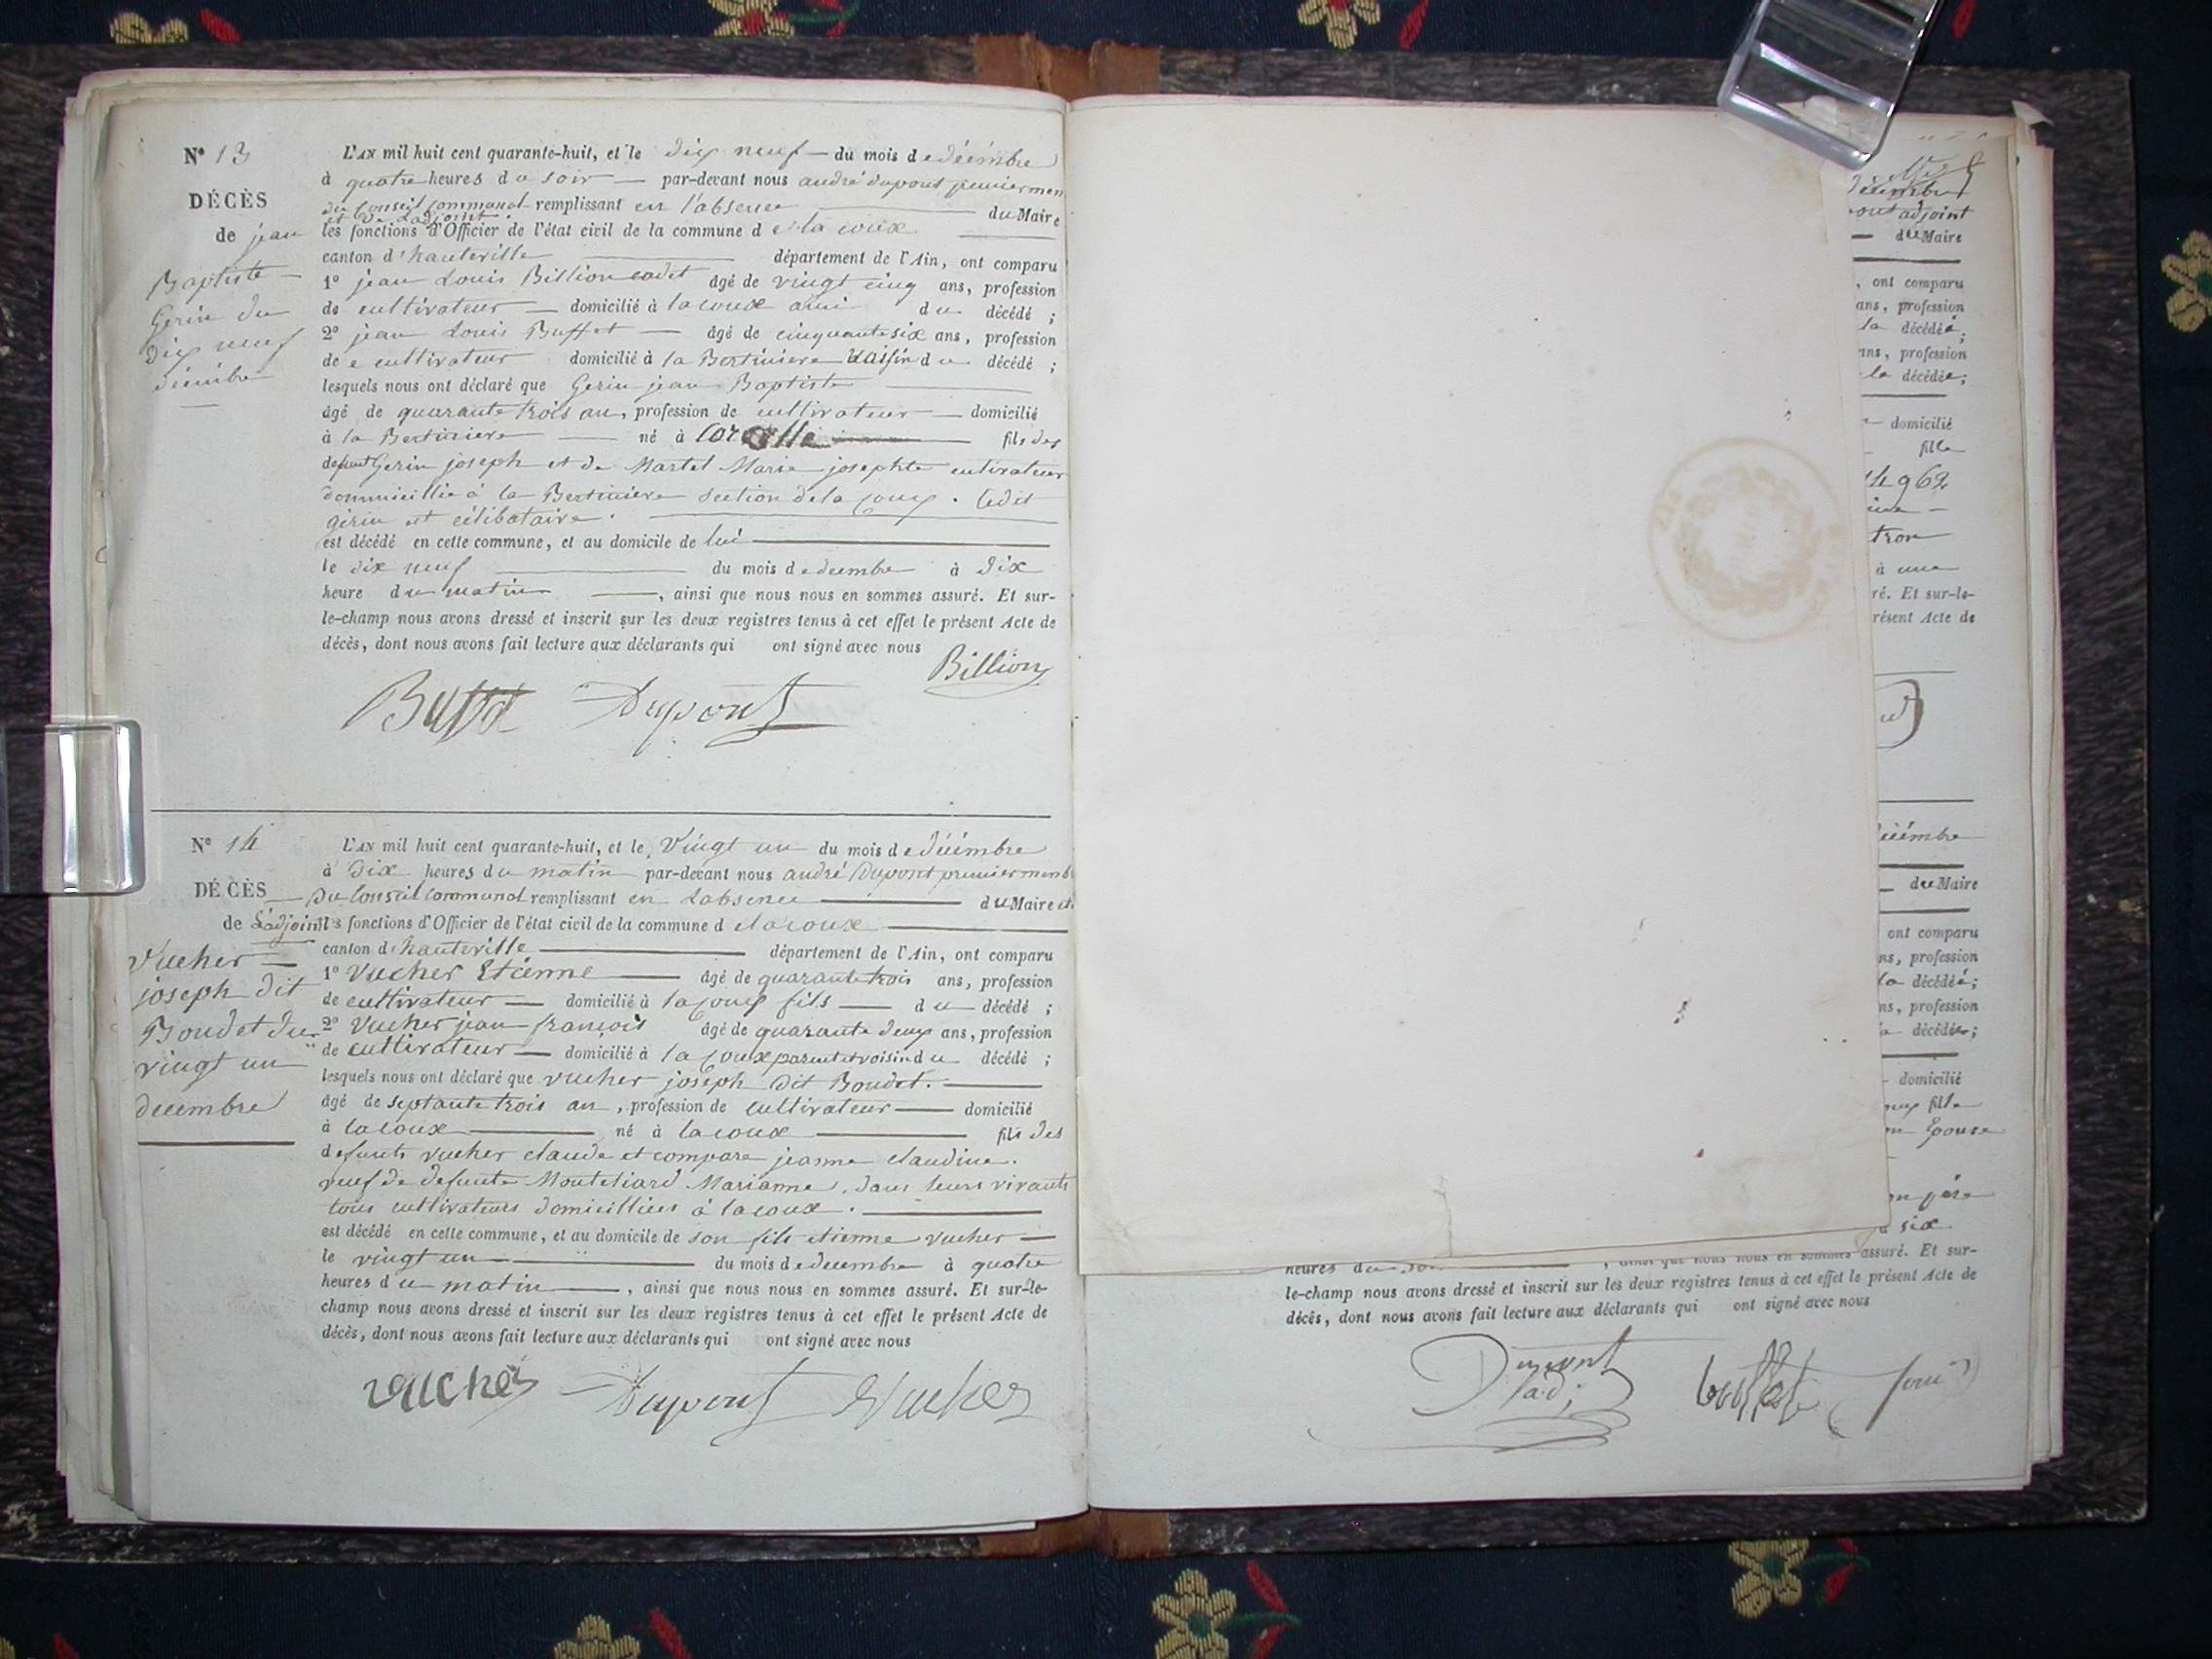 N° 13
DÉCÈS
de jean
Baptiste
Gerin du
dix neuf
décembre
L'AN mil huit cent quarante-huit, et le dix neuf du mois de décembre
à quatre heures du soir par-devant nous andré dupont premier mem
du Conseil Communal remplissant en l'absence du Maire
et de Ladjoint
les fonctions d'Officier de l'état civil de la commune de la coux
canton d'hauteville département de l'Ain, ont comparu
1° jean Louis Billion cadet âgé de vingt cinq ans, profession
de cultivateur domicilié à la coux ami du décédé ;
2° jean Louis Buffet âgé de cinquante six ans, profession
de cultivateur domicilié à la Bertiniere du décédé ;
lesquels nous ont déclaré que Gerin jean Baptiste
âgé de quarante trois an, profession de cultivateur domicilié
à la Bertiniere né à fils des
defunt Gerin joseph et de Martel Marie josephte cultivateur
dommicillié à la Bertiniere section de la coux. Ledit
gerin est célibataire.
est décédé en cette commune, et au domicile de lui
le dix neuf du mois de decembre à dix
heure du matin, ainsi que nous nous en sommes assuré. Et sur-
le-champ nous avons dressé et inscrit sur les deux registres tenus à cet effet le présent Acte de
décès, dont nous avons fait lecture aux déclarants qui ont signé avec nous
Billion
Buffet Dupont
N° 14
DÉCÈS
de
Vucher
joseph dit
Boudet du
vingt un
decembre
L'AN mil huit cent quarante-huit, et le Vingt un du mois de décembre
à Dix heures du matin par-devant nous andré Dupont premier memb
Du Conseil Communal remplissant en Labsence du Maire et
Ladjoint les fonctions d'Officier de l'état civil de la commune de lacoux
canton de hauteville département de l'Ain, ont comparu
1° Vucher Etienne âgé de quarante trois ans, profession
de cultivateur domicilié à la coux fils du décédé ;
2° Vucher jean françois âgé de quarante deux ans, profession
de cultivateur domicilié à la coux parent et voisin du décédé ;
lesquels nous ont déclaré que vucher joseph dit Boudet.
âgé de septante trois an, profession de cultivateur domicilié
à lacoux né à lacoux fils des
defunts vucher claude et compare jeanne claudine.
veuf de defunte Monteliard Marianne, dans leurs vivants
tous cultivateurs domicilliés à lacoux.
est décédé en cette commune, et au domicile de son fils etienne vucher
le vingt un du mois de decembre à quatre
heures du matin, ainsi que nous nous en sommes assuré. Et sur-le-
champ nous avons dressé et inscrit sur les deux registres tenus à cet effet le présent Acte de
décès, dont nous avons fait lecture aux déclarants qui ont signé avec nous
vucher Dupont Vucher
adjoint
du Maire
, ont comparu
ans, profession
la décédée;
ans, profession
la décédée;
domicilié
fille
à une
ré. Et sur-le-
résent Acte de
du Maire
ont comparu
ns, profession
la décédée;
ns, profession
décédée;
domicilié
fille
Epouse
père
six
heures du , ainsi que nous nous en sommes assuré. Et sur-
le-champ nous avons dressé et inscrit sur les deux registres tenus à cet effet le présent Acte de
décès, dont nous avons fait lecture aux déclarants qui ont signé avec nous
Dupont
adj